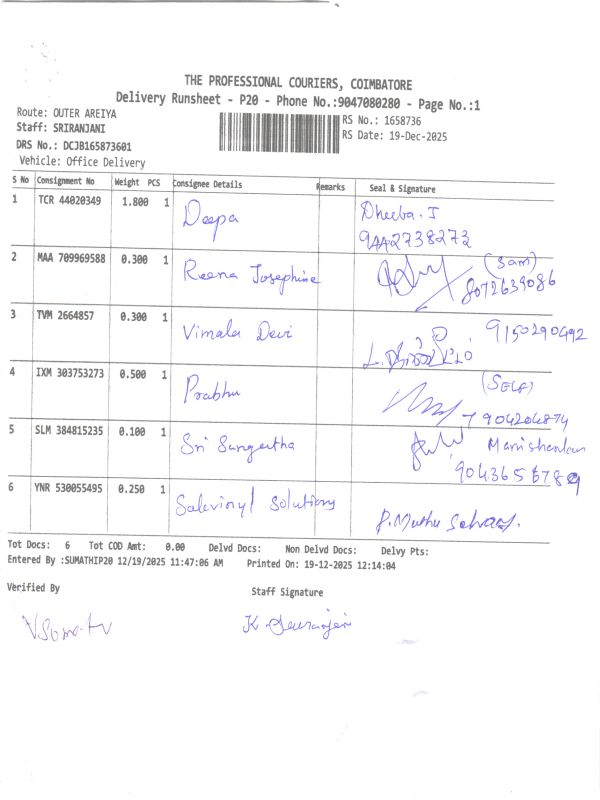 THE PROFESSIONAL COURIERS, COIMBATORE
Delivery Runsheet - P20 - Phone No.:9047080280 - Page No.:1
Route: OUTER AREIYA
RS No.: 1658736
Staff: SRIRANJANI
RS Date: 19-Dec-2025
DRS No.: DCJB165873601
Vehicle: Office Delivery
S No Consignment No Weight PCS Consignee Details Remarks Seal & Signature
1 TCR 44020349 1.800 1 Deepa Dheeba. J
9442738273
2 MAA 709969588 0.300 1 Reena Josephine (Sam)
8072639086
3 TVM 2664857 0.300 1 Vimala Devi 9150290492
4 IXM 303753273 0.500 1 Prabhu (SELF)
7904204874
5 SLM 384815235 0.100 1 Sri Sangeetha Manishankar
9043656789
6 YNR 530055495 0.250 1 Solutions
P. Muthu
Tot Docs: 6 Tot COD Amt: 0.00 Delvd Docs: Non Delvd Docs: Delvy Pts:
Entered By :SUMATHIP20 12/19/2025 11:47:06 AM Printed On: 19-12-2025 12:14:04
Verified By Staff Signature